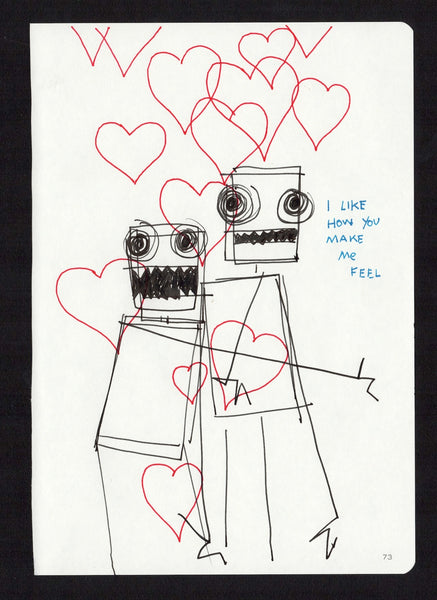 I LIKE
HOW YOU
MAKE
ME
FEEL
73